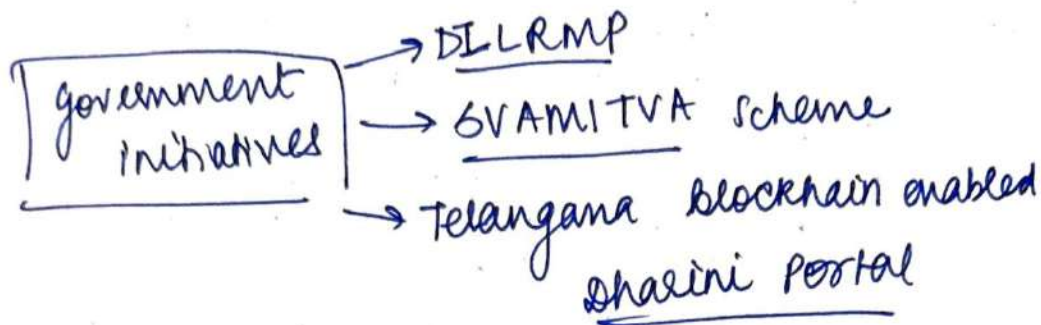 DILRMP
government
initiatives
SVAMITVA scheme
Telangana blockhain enabled
Dharini Portal